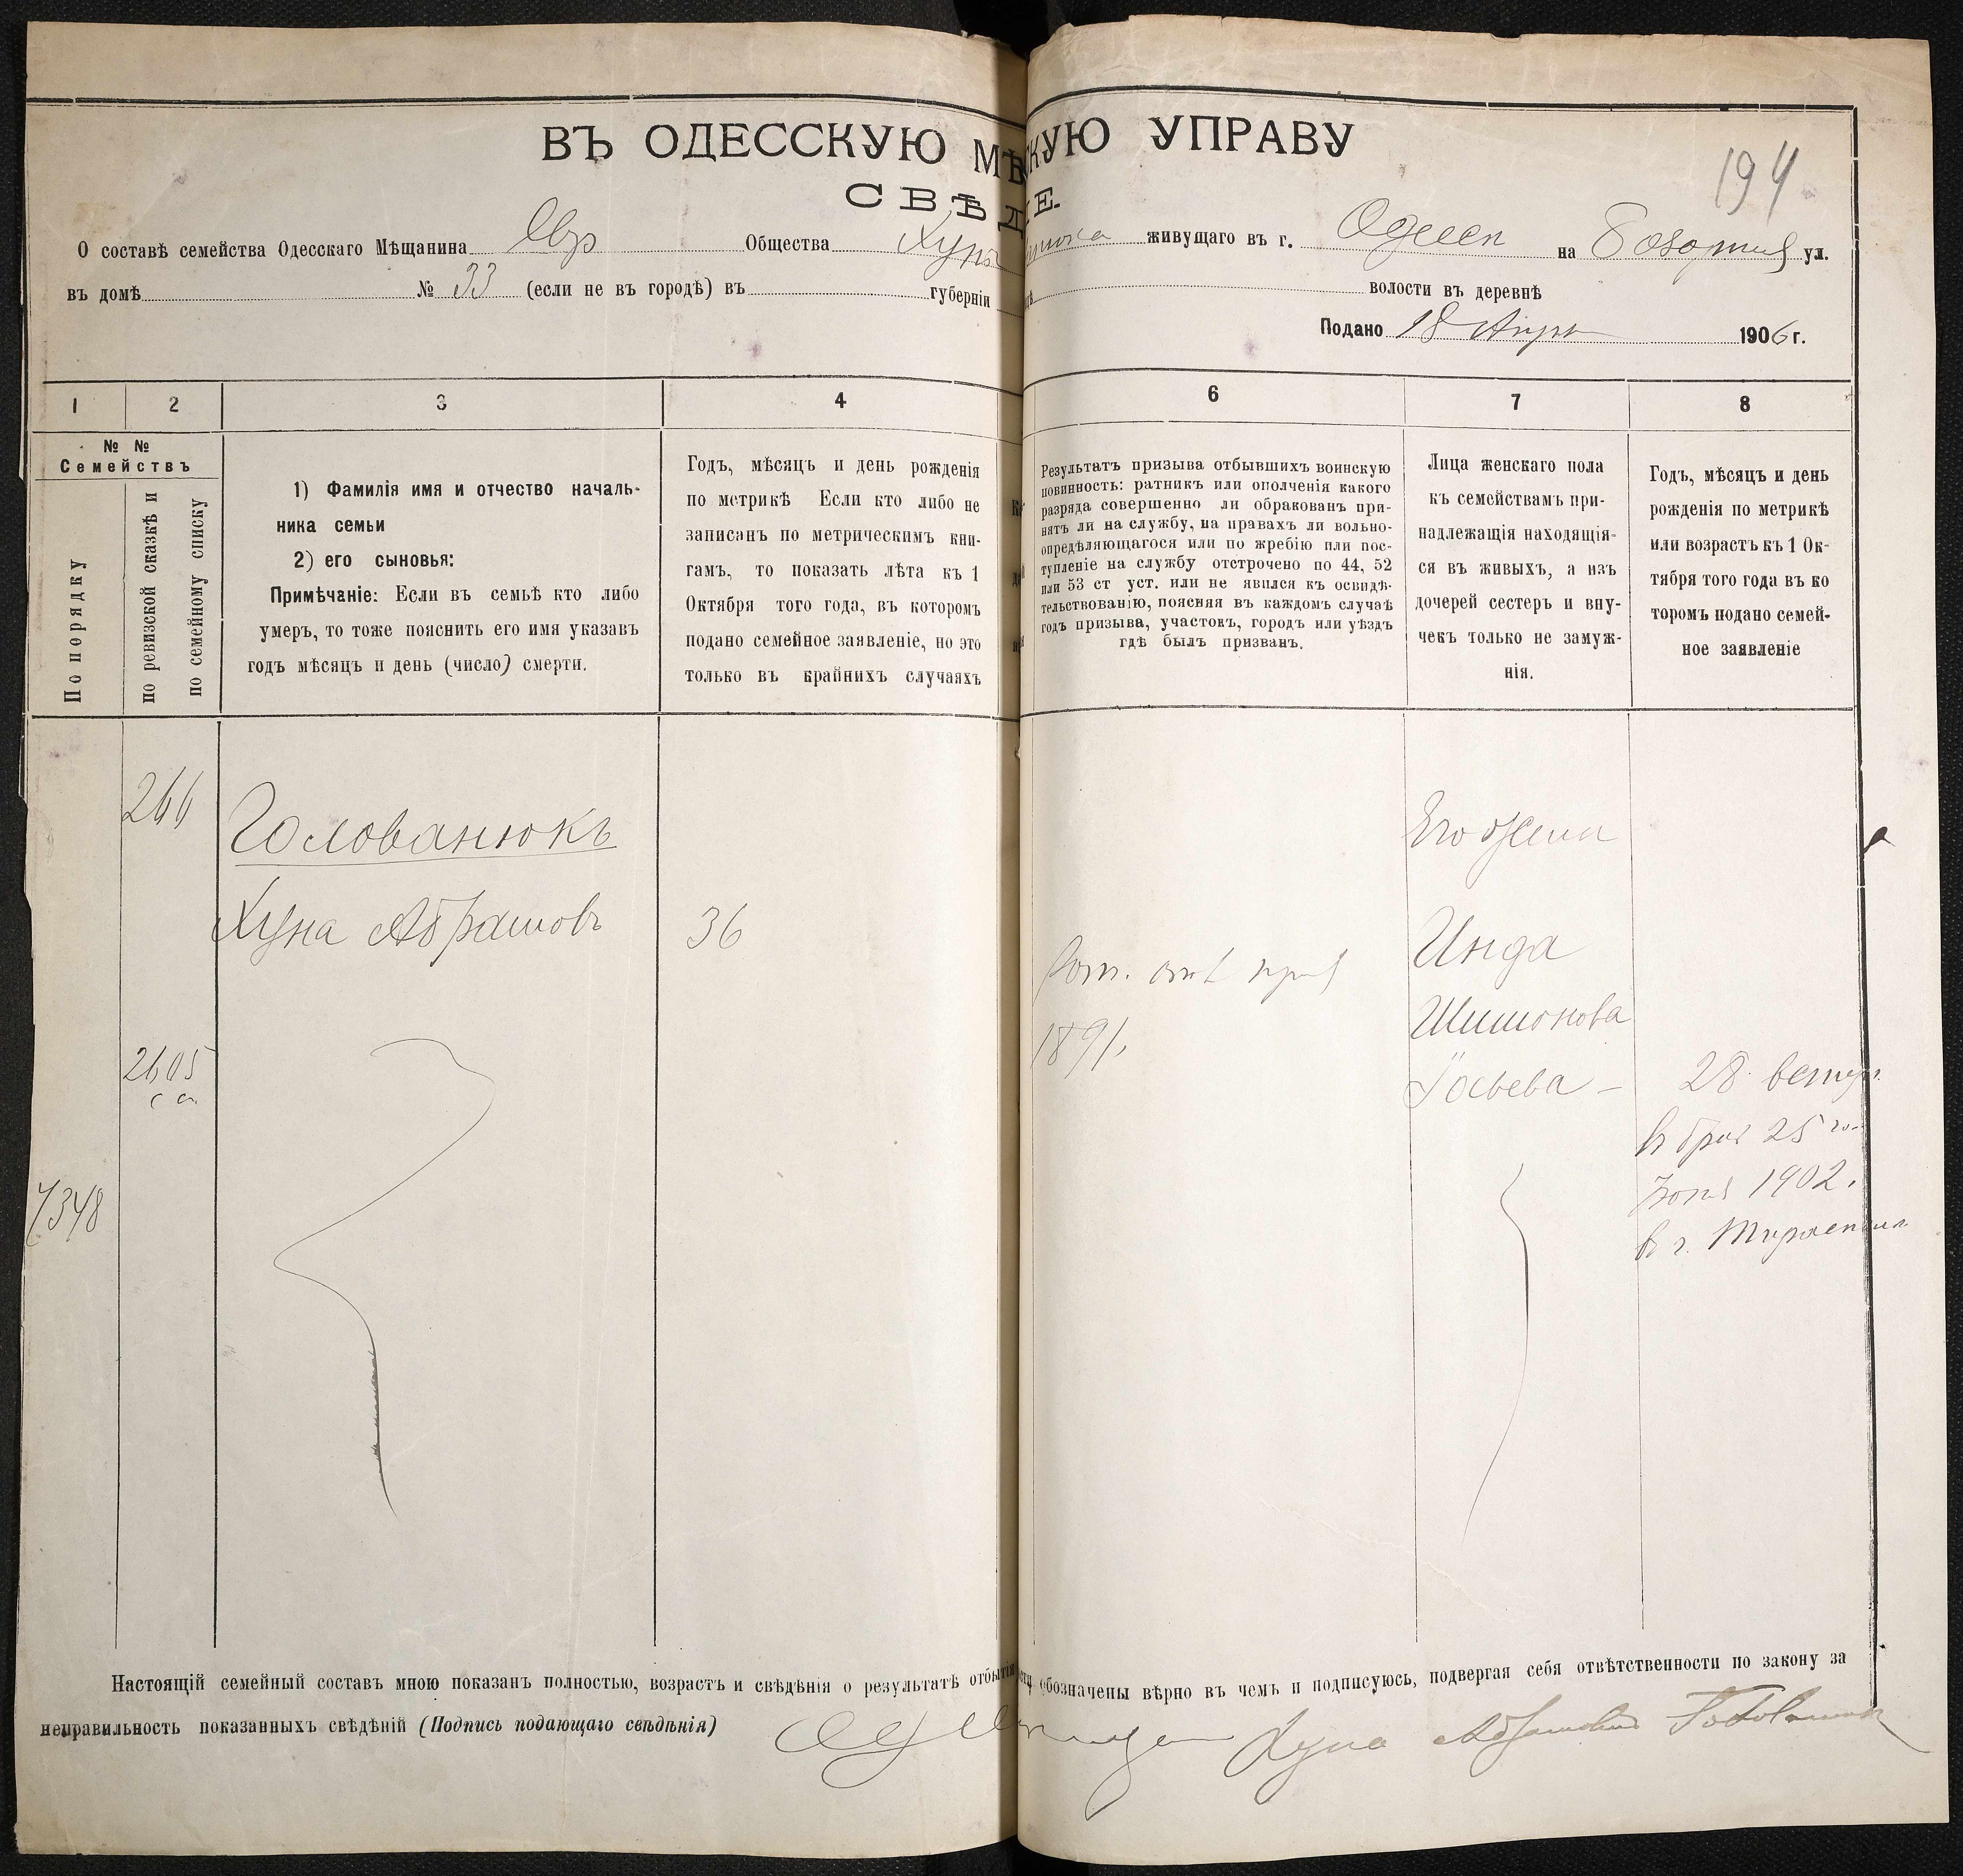 194
ВЪ ОДЕССКУЮ МѢ СКУЮ УПРАВУ
СВѢД Е.
О составѣ семейства Одесскаго Мѣщанина Евр Общества Хуны живущаго въ г. Одесса на ул.
въ домѣ № 33 (если не въ городѣ) въ губерніи волости въ деревнѣ
Подано 18 1906 г.
1 2 3 4 6 7 8
№ №
Семействъ
По порядку
по ревизской сказкѣ и
по семейному списку
1) Фамилія имя и отчество началь-
ника семьи
2) его сыновья:
Примѣчаніе: Если въ семьѣ кто либо
умеръ, то тоже пояснить его имя указавъ
годъ мѣсяцъ и день (число) смерти.
Годъ, мѣсяцъ и день рожденія
по метрикѣ Если кто либо не
записанъ по метрическимъ кни-
гамъ, то показать лѣта къ 1
Октября того года, въ которомъ
подано семейное заявленіе, но это
только въ крайнихъ случаяхъ
Результатъ призыва отбывшихъ воинскую
повинность: ратникъ или ополченія какого
разряда совершенно ли обракованъ при-
нятъ ли на службу, на правахъ ли вольно-
опредѣляющагося или по жребію или пос-
тупленіе на службу отстрочено по 44, 52
или 53 ст уст. или не явился къ освидѣ-
тельствованію, поясняя въ каждомъ случаѣ
годъ призыва, участокъ, городъ или уѣздъ
гдѣ былъ призванъ.
Лица женскаго пола
къ семействамъ при-
надлежащія находящія-
ся въ живыхъ, а изъ
дочерей сестеръ и вну-
чекъ только не замуж-
нія.
Годъ, мѣсяцъ и день
рожденія по метрикѣ
или возрастъ къ 1 Ок-
тября того года въ ко
торомъ подано семей-
ное заявленіе
266
Голованюкъ
Хуна Абрамовъ
36
2605
7348
1891.
Его жена
Инда
Шимонова
28
25
1902.
въ г.
Настоящій семейный составъ мною показанъ полностью, возрастъ и свѣдѣнія о результатѣ обозначены вѣрно въ чемъ и подписуюсь, подвергая себя отвѣтственности по закону за
неправильность показанныхъ свѣдѣній (Подпись подающаго свѣдѣнія) Хуна Абрамовъ Голованюк